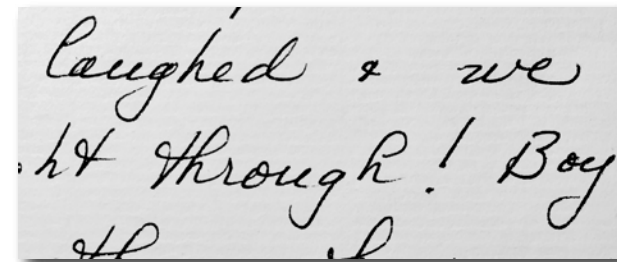 laughed & we
ht through! Boy